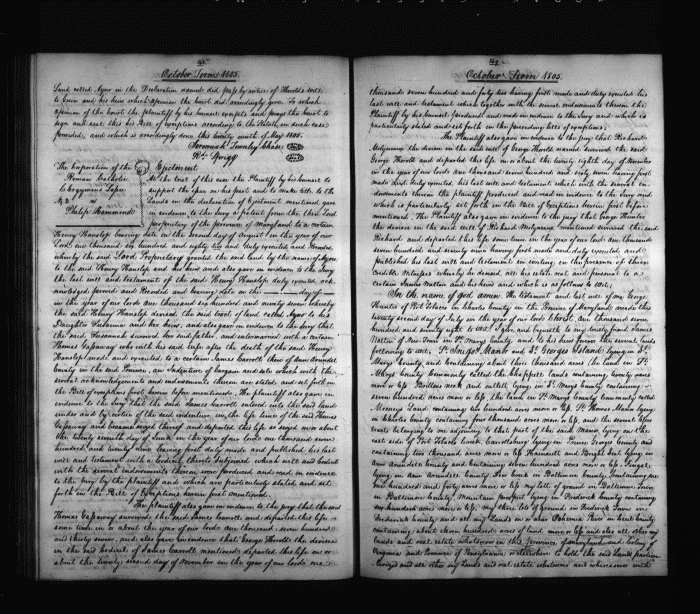 October Term 1805.
Land called Ayno in the Declaration named did pass by virtue of Thorold's will
to him and his heirs which opinion the Court did accordingly give. To which
opinion of the Court the plaintiff by his counsel excepts and prays the Court to
sign and seal this his Bill of exceptions according to the Statute in such case
provided, and which is accordingly done this twenty until of May 1805.
Jeremiah Townley Chase
Rd. Sprigg
The Corporation of the
Roman Catholic
Clergymen Lessee
vs
Philip Hammond
Ejectment
At the trial of this case the Plaintiff by his counsel to
support the issue on his part and to make title to the
Lands in the declaration of Ejectment mentioned gave
in evidence to the Jury a patent from the then Lord
proprietary of the province of Maryland to a certain
Henry Hanslap bearing date on the second day of August in the year of our
Lord one thousand six hundred and eighty two and duly executed and
whereby the said Lord Proprietary granted the said land by the name of Ayno
to the said Henry Hanslap and his heirs and also gave in evidence to the Jury
the last will and testament of the said Henry Hanslap duly executed
and bearing date on the
in the year of our Lord one thousand six hundred and ninety seven whereby
the said Henry Hanslap devised the said tract of land called Ayno to his
Daughter Susanna and her heirs, and also gave in evidence to the Jury that
the said Susanna survived her said father, and intermarried with a certain
Thomas Gassaway who with his said wife after the death of the said Henry
Hanslap made and executed to a certain James Carroll then of Ann Arundel
County in the said Province, an Indenture of bargain and sale which with the
several acknowledgements and indorsements thereon are stated and set forth in
the Bill of exceptions first herein before mentioned. The plaintiff also gave in
evidence to the Jury that the said James Carroll entered into the said land
under and by virtue of the said indenture in the life time of the said Thomas
Gassaway and became seized thereof and departed this life so seized on or about
the twenty seventh day of in the year of our Lord one thousand seven
hundred and twenty nine having first duly made and published his last
will and testament with a codicil thereto subjoined which will and codicil
with the several indorsements thereon were produced and read in evidence
to the jury by the plaintiff and which are particularly stated and set
forth in the Bill of Exceptions herein first mentioned.
The plaintiff also gave in evidence to the jury that the said
Thomas Gassaway survived the said James Carroll and departed this life
some time in or about the year of our Lord one thousand seven hundred
and thirty seven, and also gave in evidence that George Thorold the devisee
in the said codicil of James Carroll mentioned departed this life on or
about the twenty second day of November in the year of our Lord one
October Term 1805.
thousand seven hundred and forty two having first made and duly executed his
last will and testament which together with the several endorsements thereon the
Plaintiff by his counsel produced and read in evidence to the Jury and which is
particularly stated and set forth in the preceding bill of exceptions.
The Plaintiff also gave in evidence to the jury that Richard
Molyneux the devisee in the will of George Thorold named survived the said
George Thorold and departed this life on or about the twenty eighth day of
in the year of our Lord one thousand seven hundred and sixty seven having first
made and duly executed his last will and testament which with the several
endorsements thereon the plaintiff produced and read in evidence to the Jury and
which is particularly set forth in the Bill of Exceptions herein first before
mentioned. The Plaintiff also gave in evidence to the jury that George Hunter
the devisee in the said will of Richard Molyneux mentioned survived the said
Richard and departed this life some time in the year of our Lord one thousand
seven hundred and seventy nine having first made and duly executed and
published his last will and testament in writing in the presence of three
credible Witnesses whereby he devised all his estate real and personal to a
certain James Walton and his heirs and which is as follows to wit;
In the name of God amen. The testament and last will of me George
Hunter of Port Tobacco in Charles County in the Province of Maryland made this
twenty second day of July in the year of our Lord Christ one thousand seven
hundred and seventy eight to wit; I give and bequeath to my lovely friend James
Walton of New Town in St Marys County and to his heirs forever the several lands
following to wit, St Inigos Manor and St Georges Island lying in St
Marys County and containing about three thousand acres the land in St
Marys County commonly called the Chappell lands containing twenty acres
more or less, Brittons neck and outlett lying in St Marys County containing
seven hundred acres more or less, the land in St Marys County commonly called
Meoneys Land containing two hundred acres more or less. St Thomas Manor lying
in Charles County containing four thousand acres more or less, and the several
tracts belonging to or adjoining to that part of the said Manor lying on the
east side of Port Tobacco creek. Carrollsburg lying in Prince Georges County and
containing two thousand acres more or less. and lying in
Ann Arundell County and containing seven hundred acres more or less.
lying in Ann Arundell County. lying in Baltimore County, containing
hundred and forty acres more or less. my lott of ground in Baltimore Town
in Baltimore County, Mountain prospect lying in Frederick County containing
six hundred acres more or less. my three lots of ground in Frederick Town in
Frederick County and all my Lands on or near Bohemia River in Cecil County
containing about hundred acres of land more or less and also all other my
lands and real estate whatsoever in this province of Maryland and colony of
Virginia and Province of Pensylvania or elsewhere to hold the said Lands
and all other my Lands and real estate whatsoever and wheresoever with